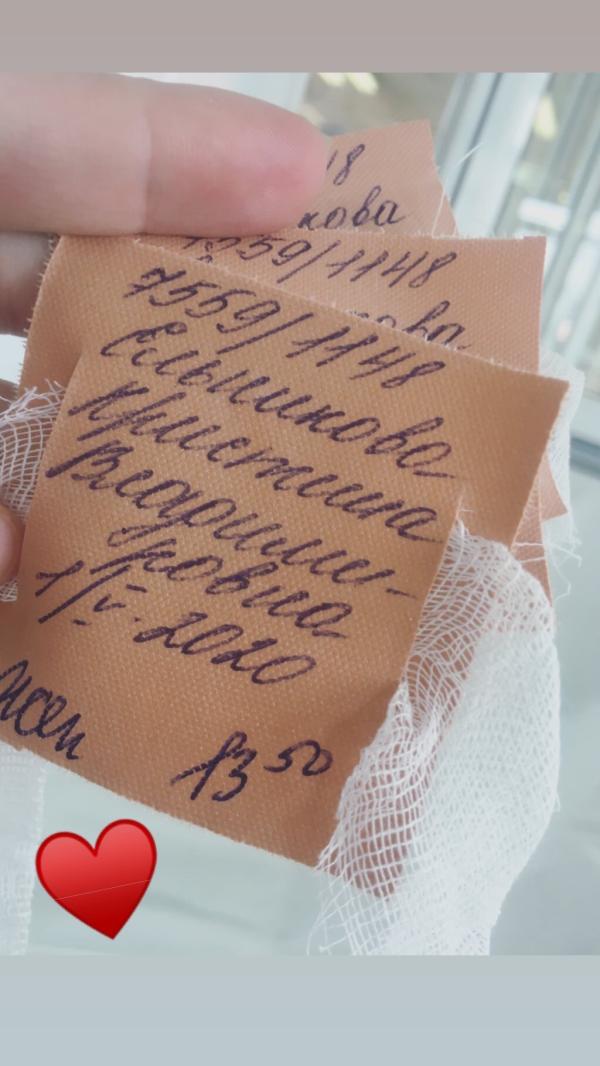 18
кова
7559/1148
кова
7559/1148
Ельшикова
Кристина
Владими-
ровна
1/V. 2020
жен 13 50